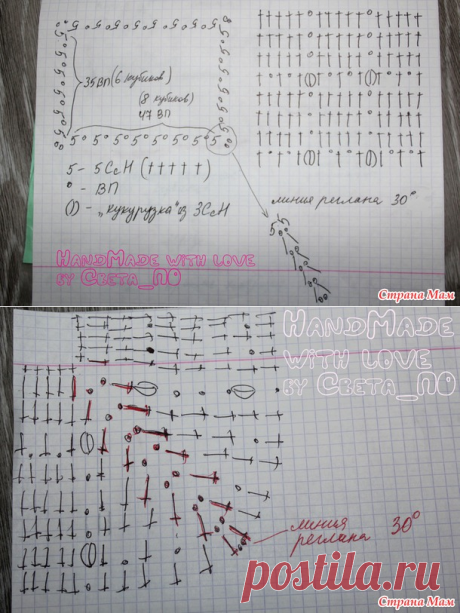 35ВП (6 кубиков)
(8 кубиков)
47 ВП
5 - 5СсН (†††††)
° - ВП
() - „кукурузка" из 3СсН
линия реглана 30°
HandMade with love
by Света_ПО
Страна Мам
HandMade
with love
by Света_ПО
линия
реглана 30°
postila.ru
Страна Мам